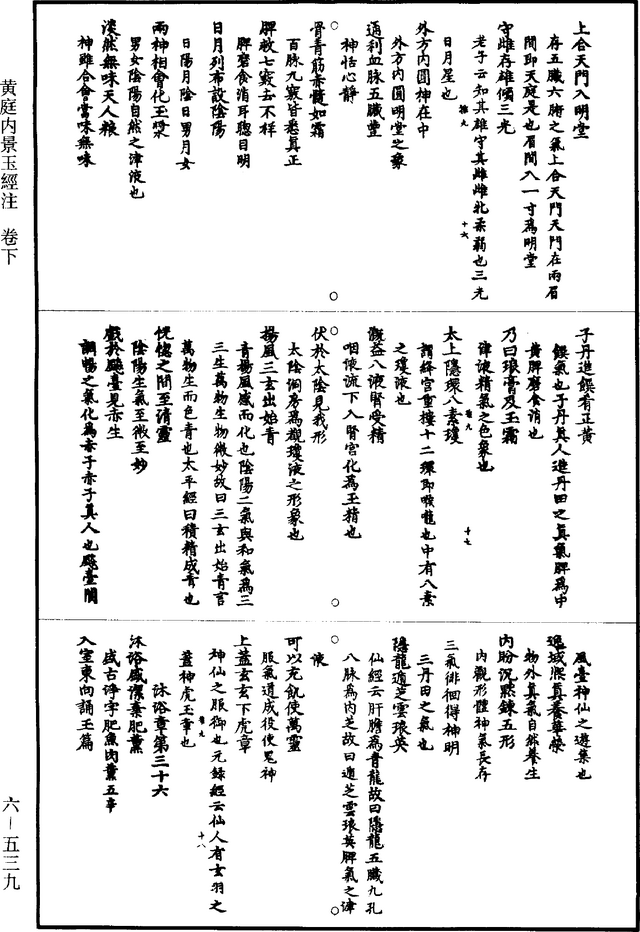 上合天門入明堂
存五臟六腑之氣上合天門天門在兩眉
間即天庭是也眉間入一寸爲明堂
守雌存雄頓三光
老子云知其雄守其雌雌牝柔弱也三光
日月星也
外方內圓神在中
外方內圓明堂之象
通利血脉五臟豐
神恬心靜
骨青筋赤髓如霜
百脉九竅皆悉真正
脾救七竅去不祥
脾磨食消耳聰目明
日月列布設陰陽
日陽月陰日男月女
兩神相會化玉漿
男女陰陽自然之津液也
淡然無味天人粮
神雖合會當味無味
子丹進饌肴正黃
饌氣也子丹真人進丹田之真氣脾爲中
黃脾磨食消也
乃曰琅膏及玉霜
津液精氣之色象也
太上隱環八素瓊
謂絳宮重樓十二環即喉嚨也中有八素
之瓊液也
溉益八液腎受精
咽液流下入腎宮化爲玉精也
伏於太陰見我形
太陰洞房爲觀瓊液之形象也
揚風三玄出始青
青揚風感而化也陰陽二氣與和氣爲三
三生萬物生物微妙故曰三玄出始青言
萬物生而色青也太平經曰積精成青也
恍惚之間至清靈
陰陽生氣至微至妙
戲於飈臺見赤生
調暢之氣化爲赤子赤子真人也飈臺閬
風臺神仙之遊集也
逸域熙真養華榮
物外真氣自然養生
內盼沉默鍊五形
內觀形體神氣長存
三氣徘徊得神明
三丹田之氣也
隱龍遁芝雲琅英
仙經云肝膽爲青龍故曰隱龍五臟九孔
八脉爲內芝故曰遁芝雲琅英脾氣之津
液
可以充飢使萬靈
服氣道成役使鬼神
上蓋玄玄下虎章
神仙之服御也元錄經云仙人有玄羽之
蓋神虎玉章也
沐浴章第三十六
沐浴盛潔棄肥薰
盛古淨字肥魚肉薰五辛
入室東向誦玉篇
黄庭内景玉經注 卷下
六—五三九